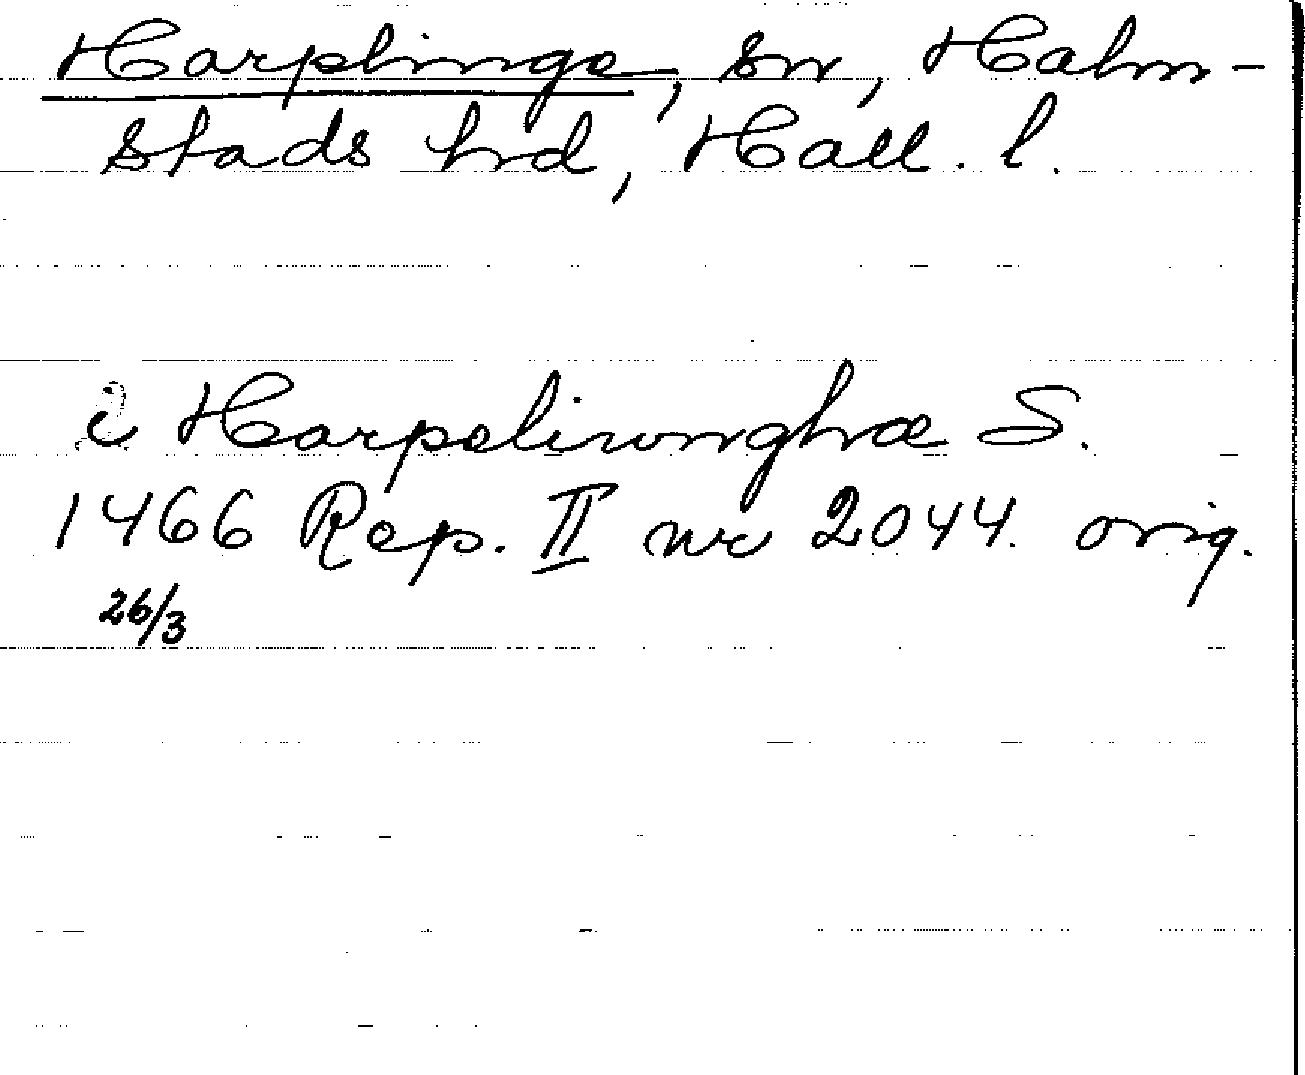 Harplinge, sn, Halm-
stads hd, Hall. l.
i Harpeliwnghæ S.
1466 Rep. II nr 2044. orig.
26/3